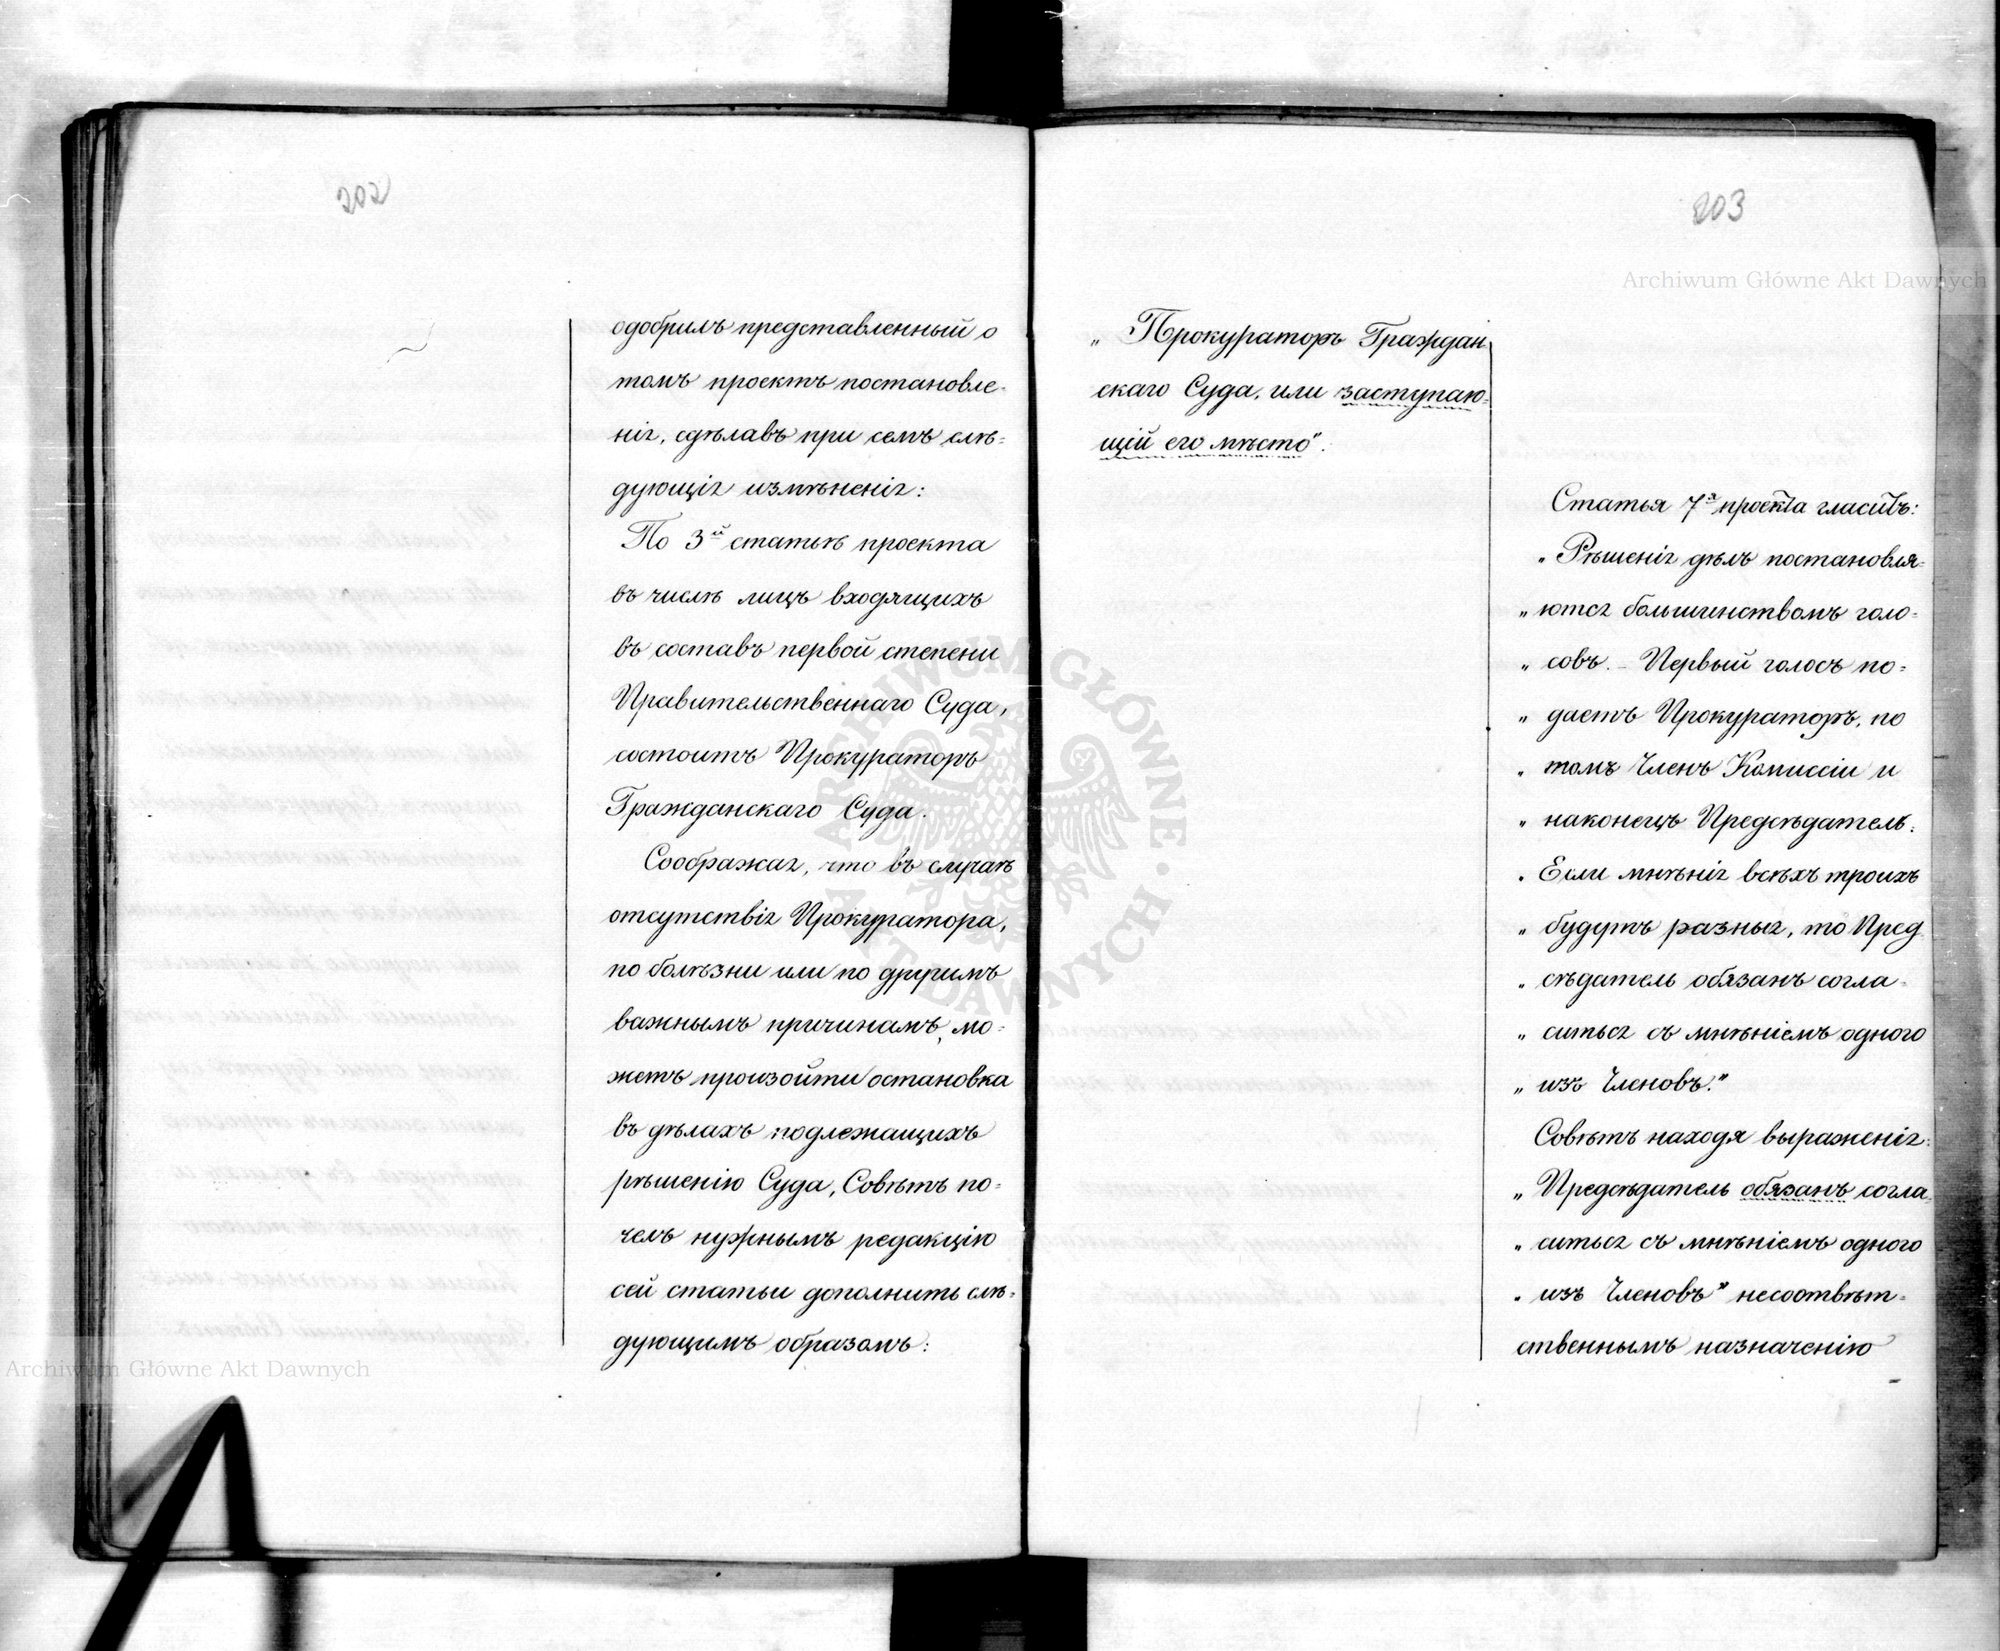 202
одобрилъ представленный о
томъ проектъ постановле-
нія, сдѣлавъ при семъ слѣ-
дующія измѣненія:
По 3й статьѣ проекта
въ числѣ лицъ входящихъ
въ составъ первой степени
Правительственнаго Суда,
состоитъ Прокураторъ
Гражданскаго Суда.
Соображая, что въ случаѣ
отсутствія Прокуратора,
по болѣзни или по другимъ
важнымъ причинамъ, мо-
жетъ произойти остановка
въ дѣлахъ подлежащихъ
рѣшенію Суда, Совѣтъ по-
челъ нужнымъ редакцію
сей статьи дополнить слѣ-
дующимъ образомъ:
203
„Прокураторъ Граждан
скаго Суда, или заступаю-
щій его мѣсто".
Статья 7я проекта гласитъ:
„Рѣшенія дѣлъ постановля-
„ются большинствомъ голо-
„совъ. – Первый голосъ по-
„даетъ Прокураторъ, по
„томъ Членъ Комиссіи и
„наконецъ Предсѣдатель.
„Если мнѣнія всѣхъ троихъ
„будутъ разныя, то Пред
„сѣдатель обязанъ согла-
„ситься съ мнѣніемъ одного
„изъ Членовъ."
Совѣтъ находя выраженія:
„Предсѣдатель обязанъ согла
„ситься съ мнѣніемъ одного
„изъ Членовъ" несоотвѣт-
ственнымъ назначенію
Archiwum Główne Akt Dawnych
Archiwum Główne Akt Dawnych
ARCHIWUM GŁÓWNE AKT DAWNYCH